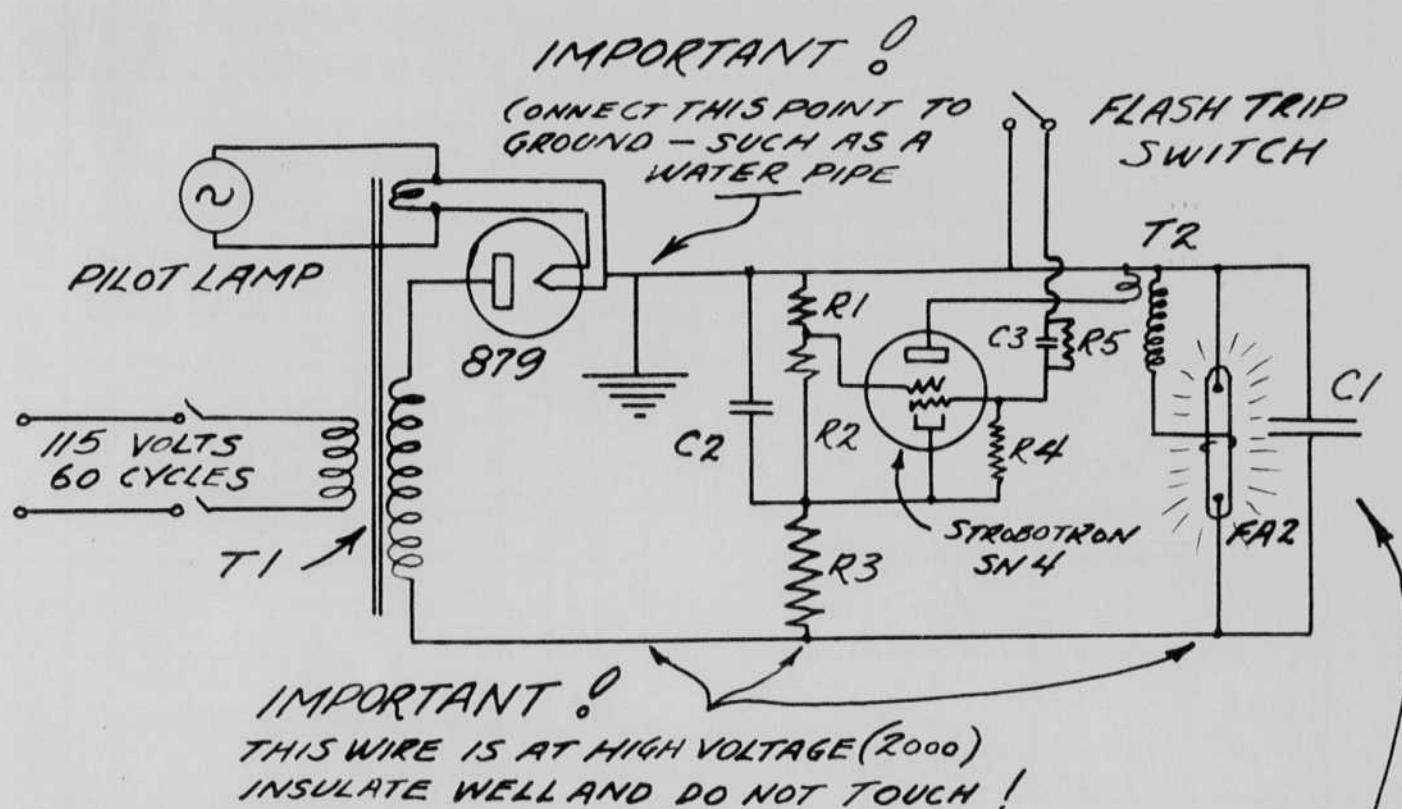 IMPORTANT!
CONNECT THIS POINT TO
GROUND – SUCH AS A
WATER PIPE
FLASH TRIP
SWITCH
PILOT LAMP
879
T2
R1
C3
R5
C1
115 VOLTS
60 CYCLES
C2
R2
R4
T1
R3
STROBOTRON
SN4
FA2
IMPORTANT!
THIS WIRE IS AT HIGH VOLTAGE (2000)
INSULATE WELL AND DO NOT TOUCH!